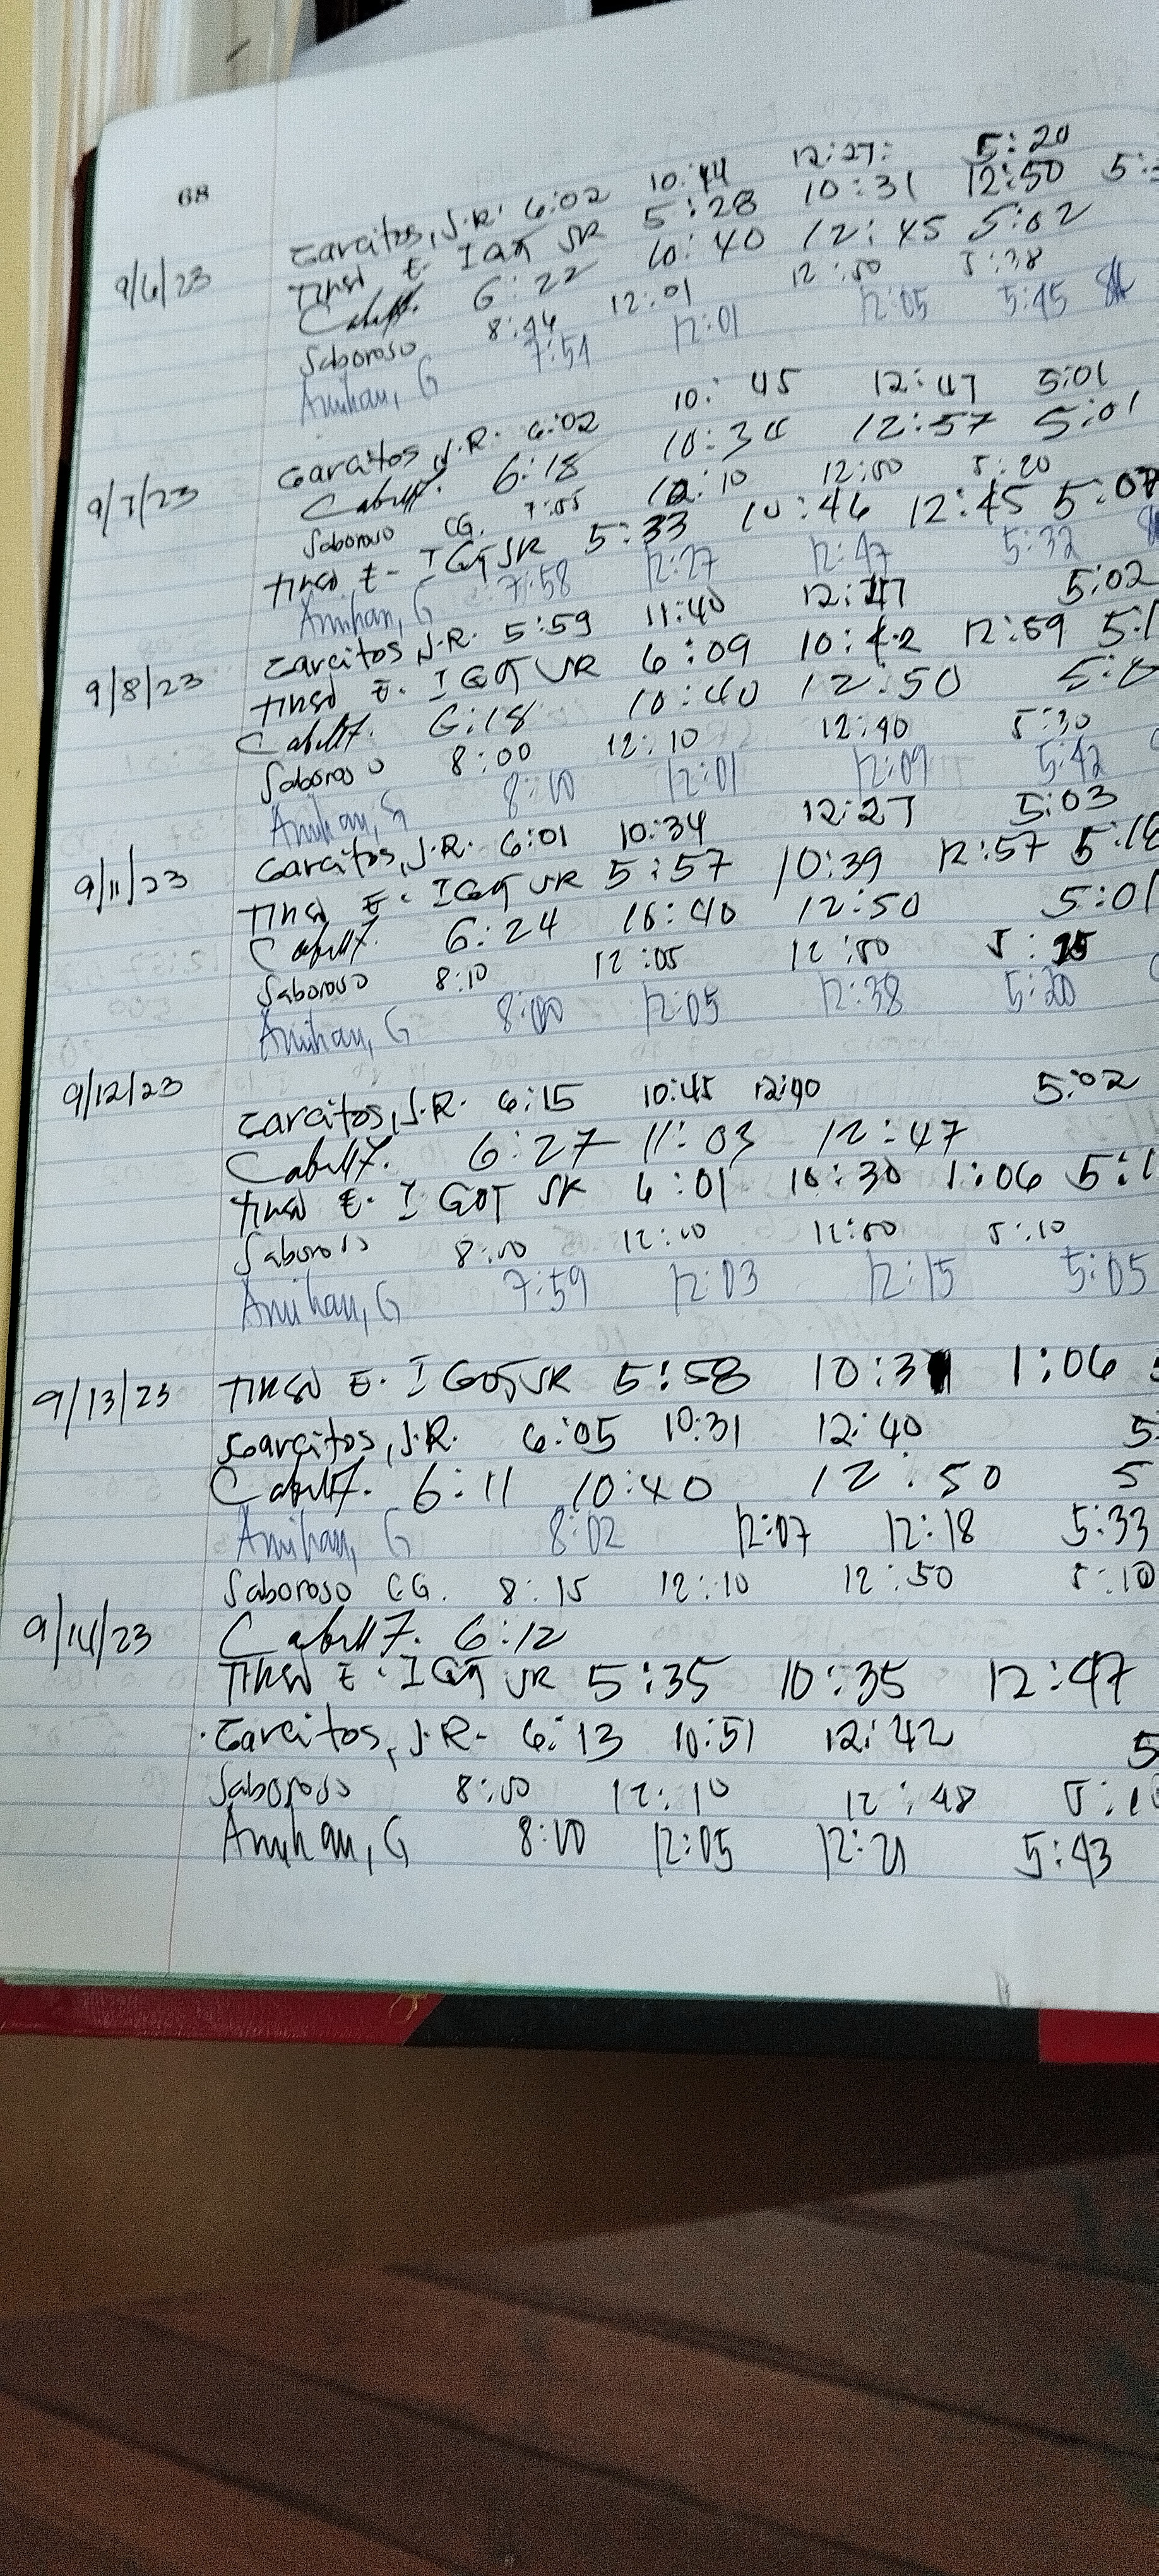 68
9/6/23 Garcitos, J.R. 6:02 10:44 12:27: 5:20
5:28 10:31 12:50 5:
6:22 10:40 12:45 5:02
Saboroso 8:44 12:01 12:50 5:38
Amihan, G 7:51 12:01 12:05 5:45
9/7/23 Garcitos, J.R. 6:02 10:45 12:47 5:01
6:18 10:30 12:57 5:01
Saboroso CG. 7:55 12:10 12:50 5:20
5:33 10:46 12:45 5:07
Amihan, G 7:58 12:27 12:47 5:32
9/8/23 Garcitos J.R. 5:59 11:40 12:47 5:02
6:09 10:42 12:59 5:1
6:18 10:40 12:50 5:0
Saboroso 8:00 12:10 12:40 5:30
Amihan, G 8:00 12:01 12:09 5:42
9/11/23 Garcitos, J.R. 6:01 10:34 12:27 5:03
5:57 10:39 12:57 5:18
6:24 10:40 12:50 5:01
Saboroso 8:10 12:05 12:50 5:25
Amihan, G 8:00 12:05 12:38 5:20
9/12/23
Garcitos, J.R. 6:15 10:45 12:40 5:02
6:27 11:03 12:47
6:01 10:30 1:06 5:1
Saboroso 8:00 12:10 12:50 5:10
Amihan, G 7:59 12:03 12:15 5:05
9/13/23 5:58 10:31 1:06
Garcitos, J.R. 6:05 10:31 12:40 5
6:11 10:40 12:50 5
Amihan, G 8:02 12:07 12:18 5:33
Saboroso CG. 8:15 12:10 12:50 5:10
9/14/23 6:12
5:35 10:35 12:47
Garcitos, J.R. 6:13 10:51 12:42 5
Saboroso 8:00 12:10 12:48 5:1
Amihan, G 8:00 12:05 12:21 5:43